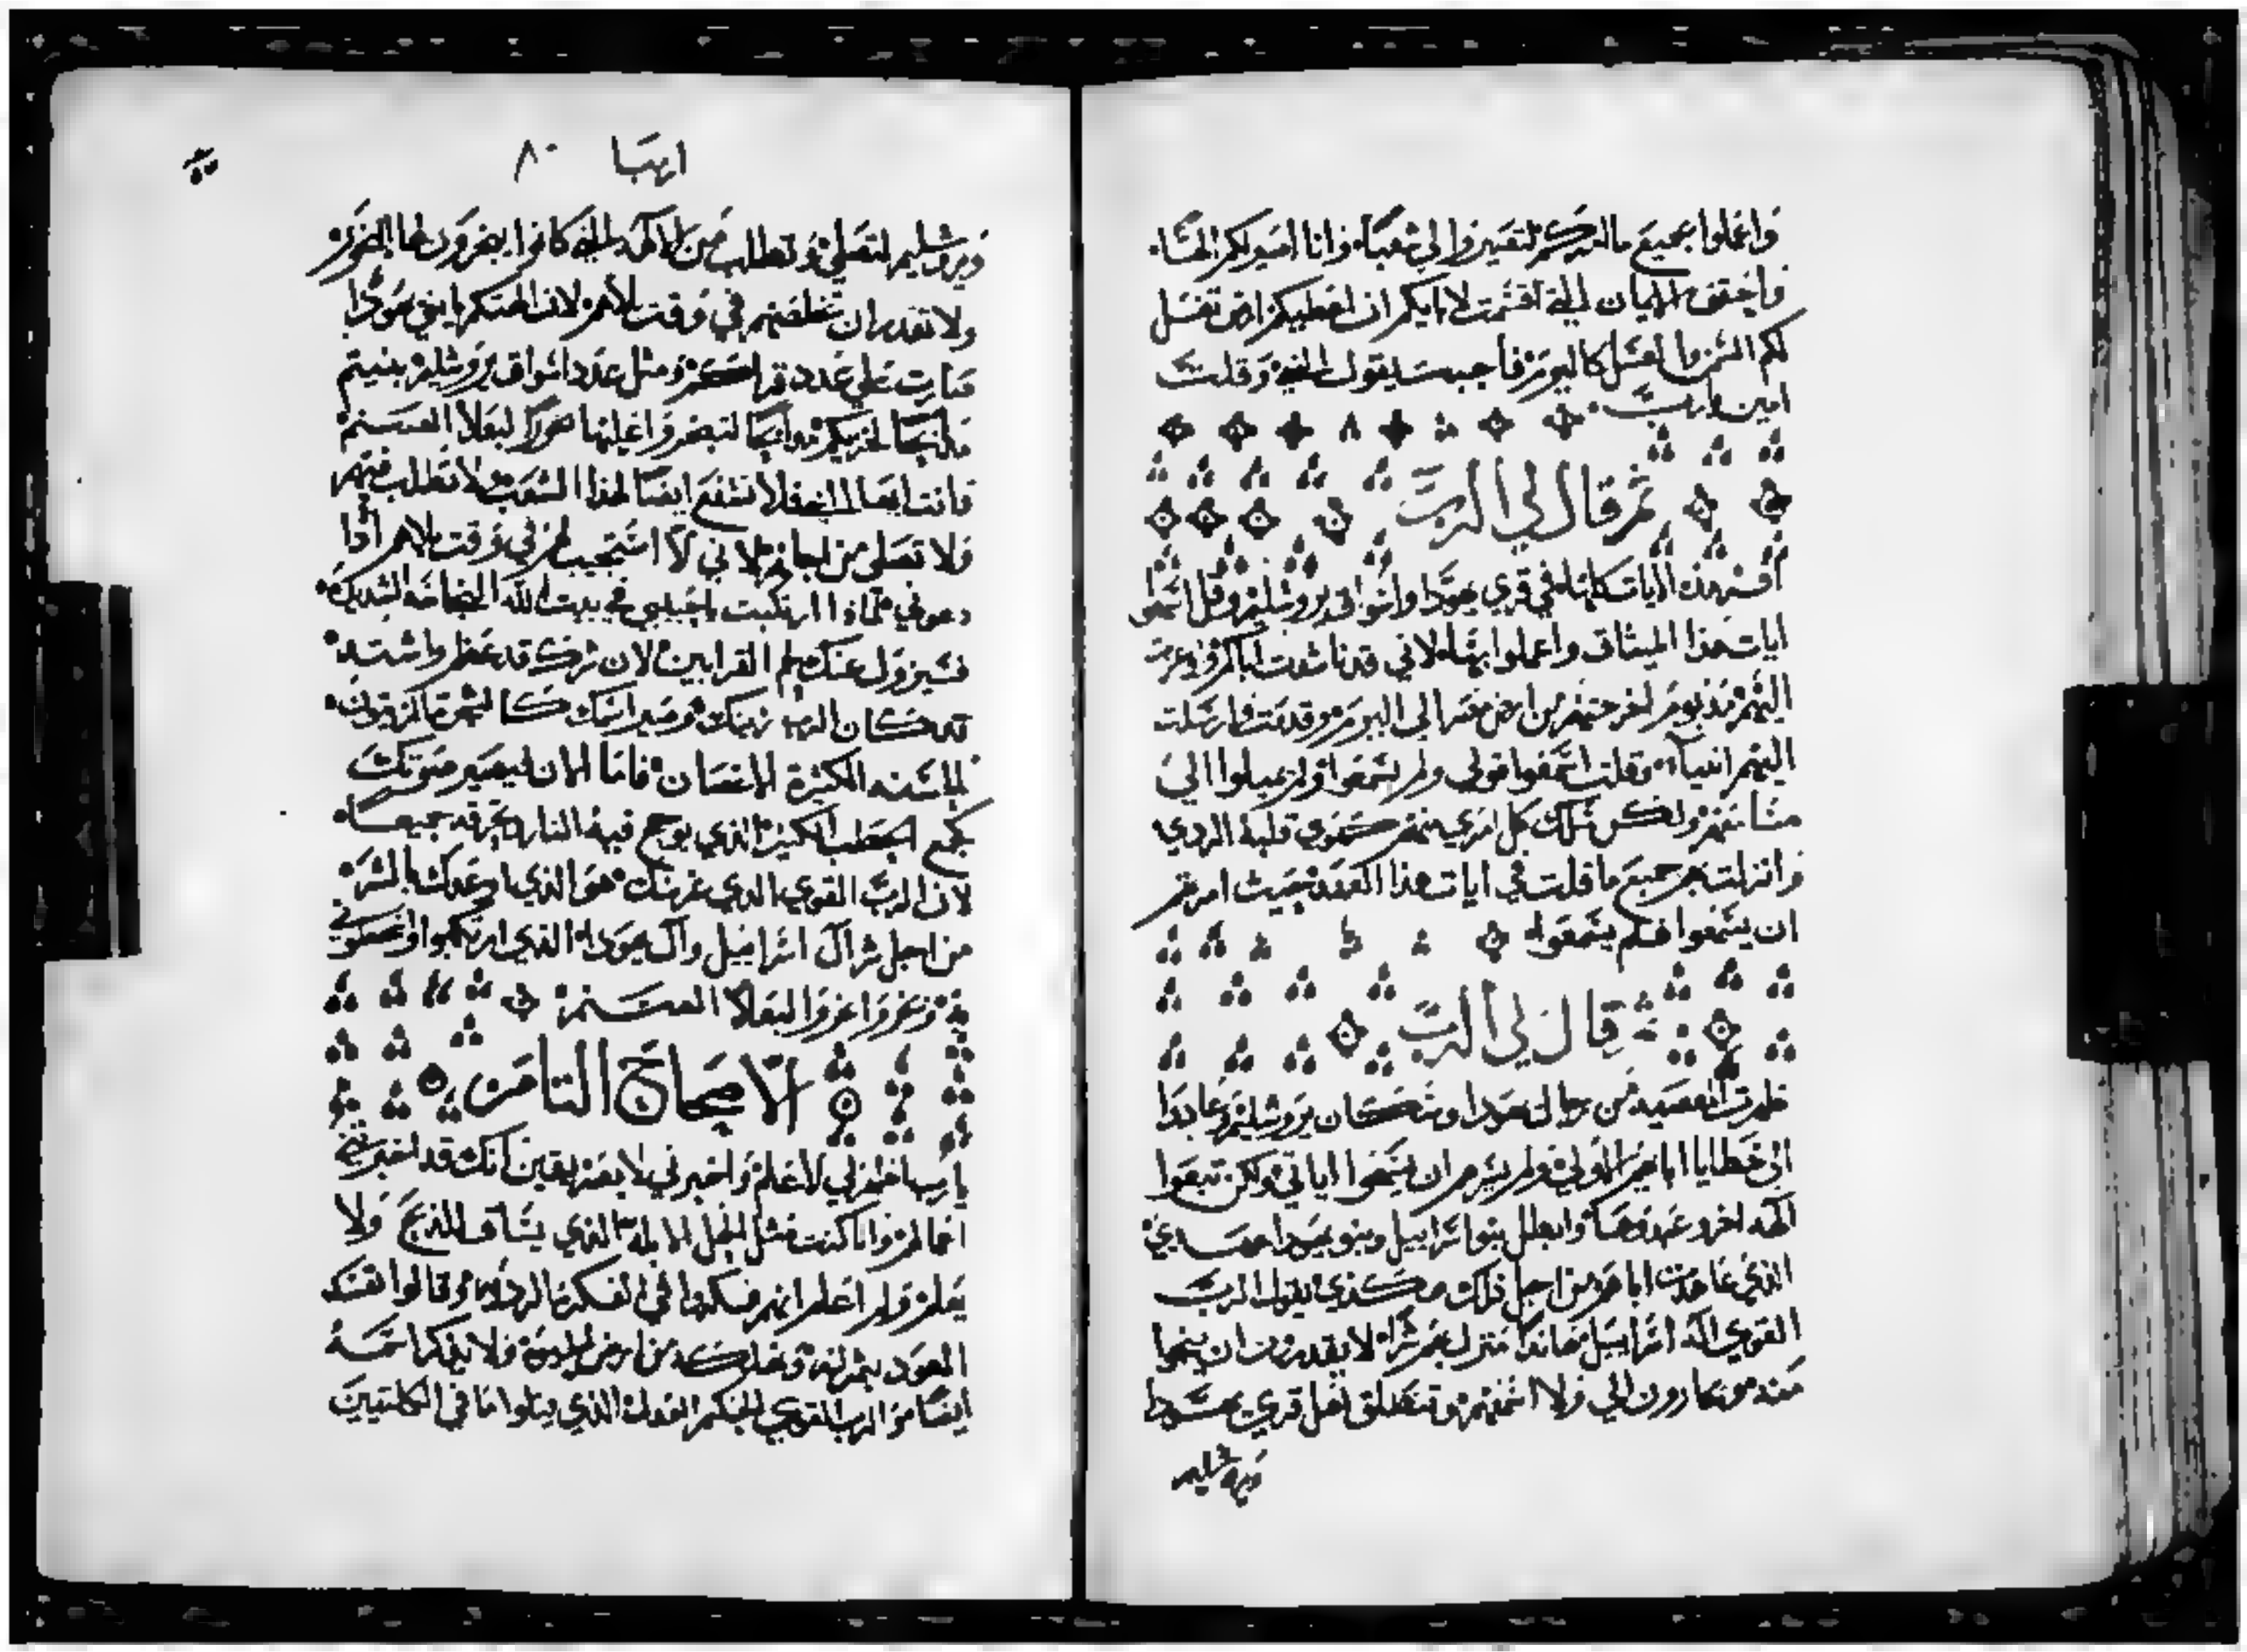 واعملوا بجميع ما امركم لتصيروا لي شعباً وانا اصير لكم الهاً
الايمان التي اقسمت لابايكم ان اعطيكم ارض تغسل
لكم السمن والعسل كاليوم فاجبت لقول وقلت
امين يارب
ثم قال لي الرب
هذه الايات كلها في قري يهودا واسواق يروشليم وقل اسمعوا
ايات هذا الميثاق واعملوا بها لاني قد ناشدت اباكم
اليهم منذ يوم اخرجتهم من ارض مصر الي اليوم وقدمت وارسلت
اليهم انبياء وقلت اسمعوا قولي ولم يسمعوا ولم يميلوا الي
مسامعهم ولكن سلك كل امري منهم كهوي قلبه الردي
وانزلت بهم جميع ما قلت في ايات هذا العهد حيث امرتهم
ان يسمعوا فلم يسمعوا
ثم قال لي الرب
ظهرت المعصيه من رجال يهودا وسكان يروشليم وعادوا
الي خطايا ابايهم الاولي ولم يسرهم ان يسمعوا اياتي ولكن تبعوا
الهه اخر وعبدوها وابطل بنوا اسراييل وبنو يهودا عهدي
الذي عاهدت اباهم من اجل ذلك هكذي يقول الرب
القوي اله اسراييل هانذا منزل بهم شراً لا يقدرون ان ينجوا
منه ويجارون الي ولا اسمعهم وتنطلق اهل قري يهودا
ويروشليم
ارميا ٨٠
ويروشليم لتصلي وتطلب من الالهه التي كانوا يبخرون لها البخور
ولا تقدر ان تخلصهم في وقت بلاهم لان الهتكم يا بني يهودا
صارت علي عدد قراكم ومثل عدد اسواق يروشليم بنيتم
مذابحا لخزيكم مذابحا لتبخروا عليها بخورًا لبعلا الصنم
فانت ايها النبي فلا تشفع ايضا لهذا الشعب لا تطلب فيهم
ولا تصلي من اجلهم لاني لا استجيب لهم في وقت بلاهم اذا
دعوني لماذا ارتكبت حبيبي في بيت الله النجاسه الشديده
فسيزول عنك لحم القرابين لان شرك قد عظم واشتد
قد كان الرب زينك وصير اسمك كالشجرة
الحسنه الكثيرة الاغصان فاما الان ليصير صوتك
كجمع الحطب الكثير الذي يوجج فيه النار وتحرقه جميعاً
لان الرب القوي الذي غرسك هو الذي اوعدك بالشر
من اجل شر ال اسراييل وال يهودا الذي ارتكبوا واغضبوني
به وبخروا بخورا لبعلا الصنم
الاصحاح الثامن
يارب اظهر لي لاعلم واخبرني لابصر يقين انك قد اخبرتني
اعمالهم وانا كنت مثل الحمل الابله الذي يساق للذبح ولا
يعلم ولم اعلم انهم فكروا في الفكره الرديه وقالوا نفسد
العود بثمرته ونهلكه من ارض الحيوة ولا يذكر اسمه
ايضا يا ايها الرب القوي الحكم العدل الذي يبلوا ما في الكليتين